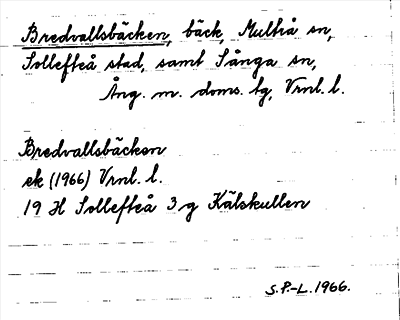 Bredvallsbäcken, bäck, Multrå sn,
Sollefteå stad, samt Sånga sn,
Ång. m. doms. tg, Vrnl. l.
Bredvallsbäcken
ek (1966) Vrnl. l.
19 H Sollefteå 3 g Kälskullen
S.P.-L. 1966.